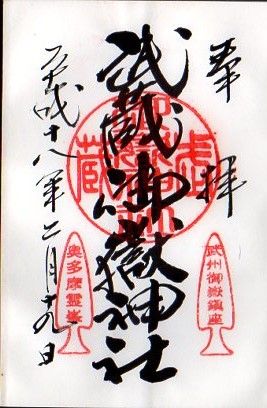 奉拝
武州御嶽鎮座
武蔵御嶽神社
奥多摩霊峯
平成十八年二月十九日